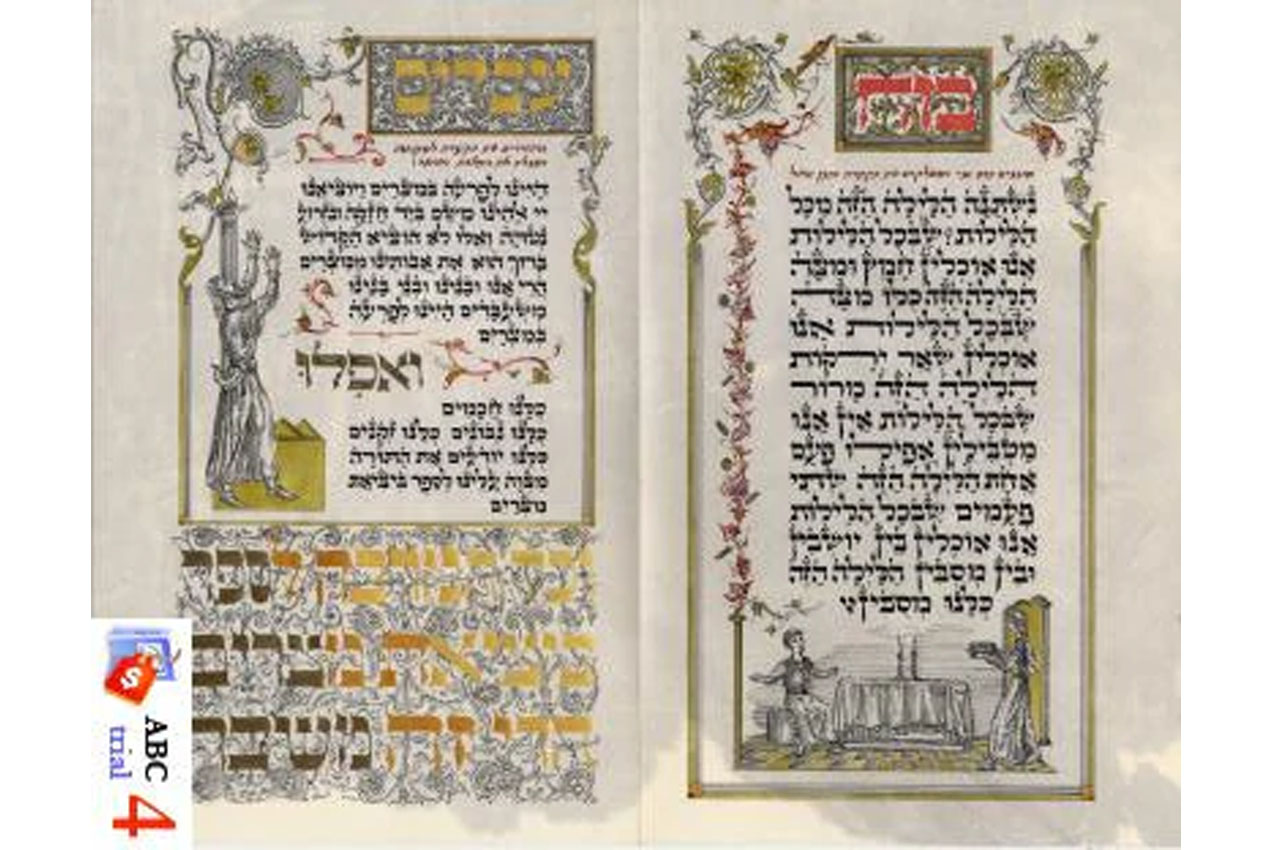 מה
מוזגים כוס שני ומסלקים את הקערה והבן שואל
נשתנה הלילה הזה מכל
הלילות? שבכל הלילות
אנו אוכלין חמץ ומצה
הלילה הזה כלו מצה
שבכל הלילות אנו
אוכלין שאר ירקות
הלילה הזה מרור
שבכל הלילות אין אנו
מטבילין אפילו פעם
אחת הלילה הזה שתי
פעמים שבכל הלילות
אנו אוכלין בין יושבין
ובין מסבין הלילה הזה
כלנו מסבין
עבדים
מחזירים את הקערה למקומה
ומגלין את המצות, ואומר:
היינו לפרעה במצרים ויוציאנו
יי אלהינו משם ביד חזקה ובזרוע
נטויה ואלו לא הוציא הקדוש
ברוך הוא את אבותינו ממצרים
הרי אנו ובנינו ובני בנינו
משעבדים היינו לפרעה
במצרים
ואפלו
כלנו חכמים
כלנו נבונים כלנו זקנים
כלנו יודעים את התורה
מצוה עלינו לספר ביציאת
מצרים
הרי זה משבח
ABC
trial
4